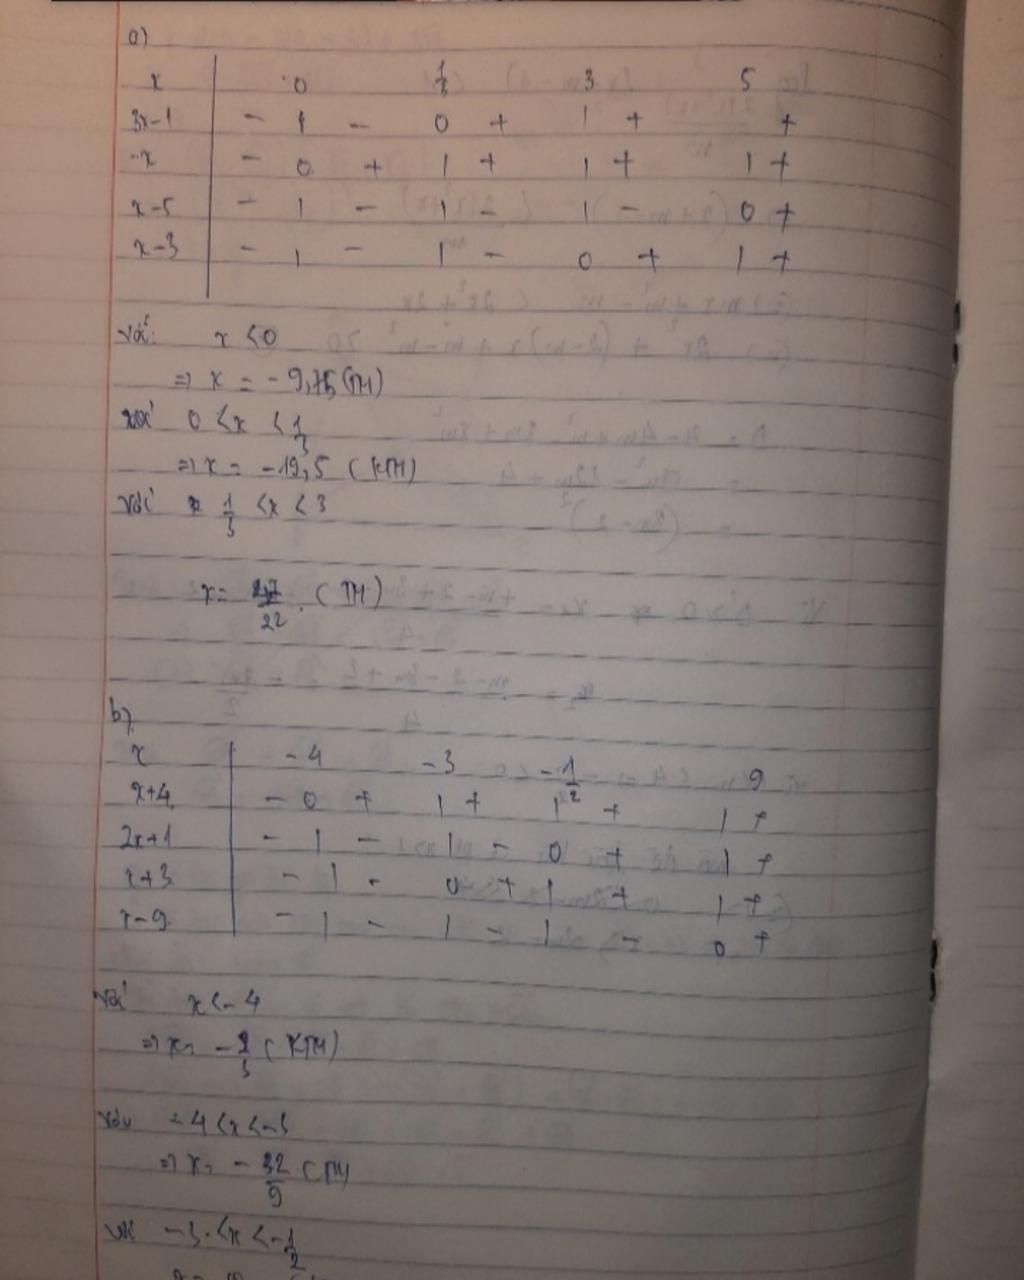 a)
x 0 1/3 3 5
3x-1 - | - 0 + | + +
-x - 0 + | + | + | +
x-5 - | - | - | - 0 +
x-3 - | - | - 0 + | +
Với: x < 0
=> x = -9,75 (TM)
với 0 < x < 1/3
=> x = -19,5 (KTM)
Với 1/3 < x < 3
x = /22 (TM)
b)
x -4 -3 -1/2 9
x+4 - 0 + | + | + | +
2x+1 - | - | - 0 + | +
x+3 - | - 0 + | + | +
x-9 - | - | - | - 0 +
Với x < -4
=> x = - /3 (KTM)
Với -4 < x < -3
=> x = -32/9 (TM)
với -3 < x < -1/2